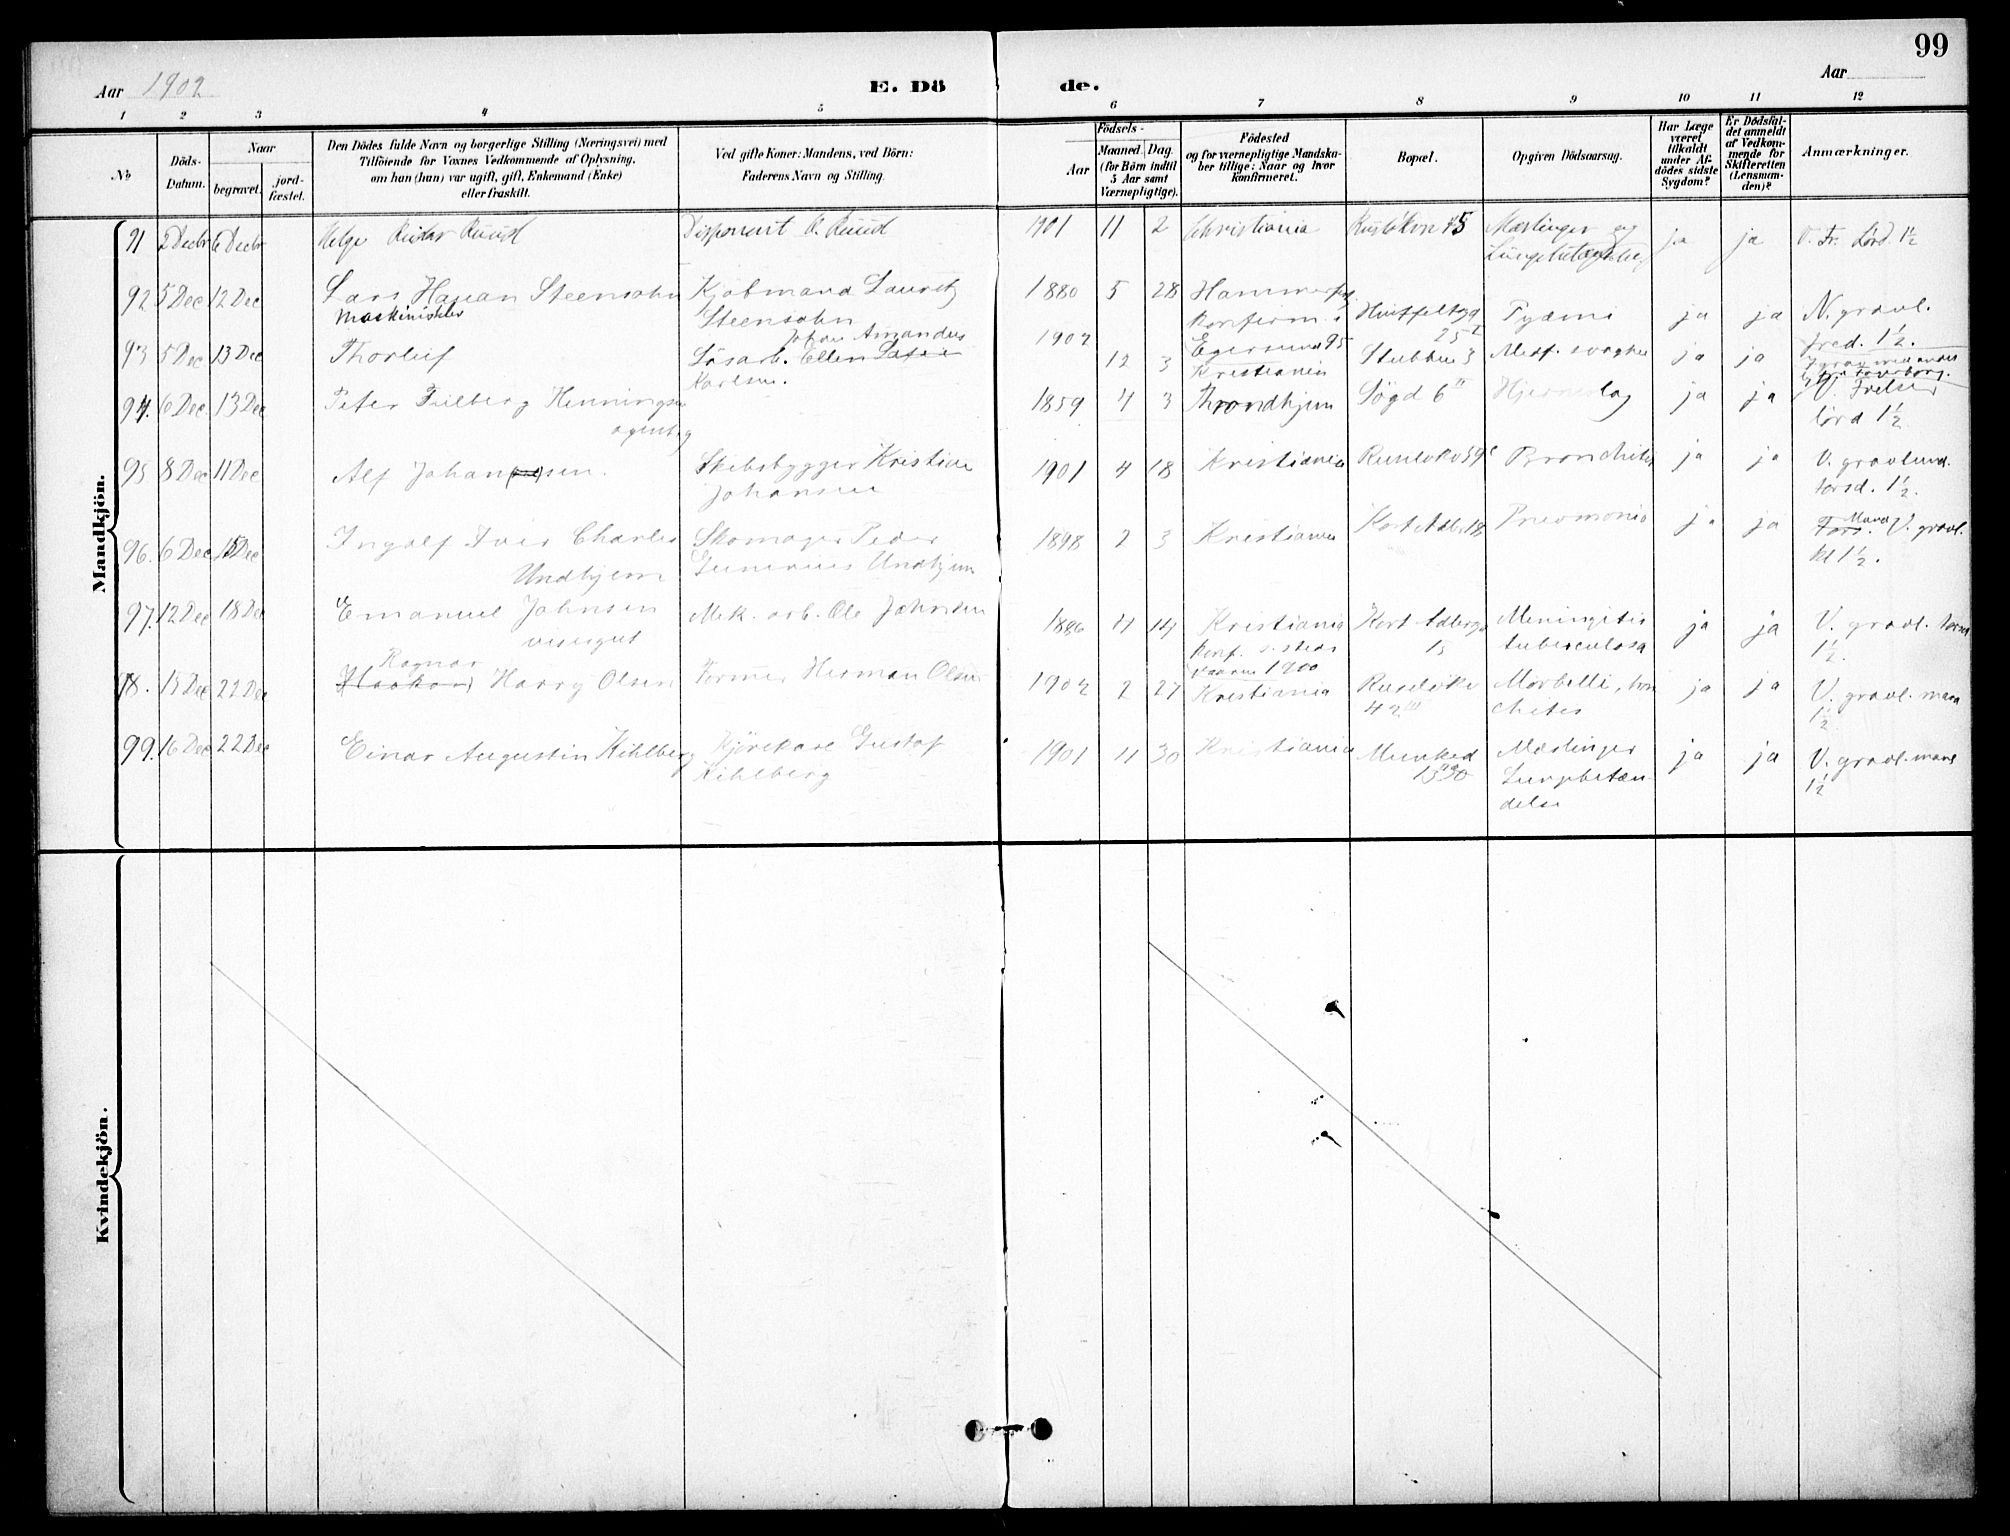 99
Aar 1902
E. Dö
de.
Aar
1 2 3 4 5 6 7 8 9 10 11 12
No
Döds-
Datum.
Naar
begravet.
jord-
fæstet.
Den Dödes fulde Navn og borgerlige Stilling (Næringsvei) med
Tilföiende for Voxnes Vedkommende af Oplysning,
om han (hun) var ugift, gift, Enkemand (Enke)
eller fraskilt.
Ved gifte Koner: Mandens, ved Börn:
Faderens Navn og Stilling.
Födsels-
Aar
Maaned. Dag.
(for Börn indtil
5 Aar samt
Værnepligtige).
Födested
og for værnepligtige Mandska-
ber tillige: Naar og hvor
konfirmeret.
Bopæl.
Opgiven Dödsaarsag.
Har Læge
været
tilkaldt
under Af-
dödes sidste
Sygdom?
Er Dödsfal-
det anmeldt
af Vedkom-
mende for
Skifteretten
(Lensman-
den)?
Anmærkninger.
Mandkjön.
91 2 Decbr 6 Decbr Helge Ruud Disponent R. Ruud 1901 11 2 Christiania 45 Mæslinger og ja ja V. Fr. Lörd. 1½
92. 5 Dec 12 Dec Lars Steensohn Kjöbmand Lauritz 1880 5 28 Hammerfest
Maskinist Steensohn konferm. i Huitfeltsg ja ja N. gravl.
Johan Amandus 1902 Egersund 95 25 fred. 1½.
93 5 Dec 13 Dec Thorleif Lösarb. 12 3 Kristiania Medf. svaghe ja ja
Karlsen.
94. 6 Dec. 13 Dec Peter Henningsen 1859 4 3 Throndhjem Hjerneslag ja ja V. Frelser
agent lörd 1½
95 8 Dec 11 Dec Alf Johansen. Skibsbygger Kristian 1901 4 18 Kristiania Bronchitis ja ja V. gravlund.
Johansen torsd. 1½.
96. 6 Dec 15 Dec Ingolf Iver Charles Skomager Peder 1898 2 3 Kristiania Kort Adlr 18 Pneomonia ja ja Mand V. gravl.
Undhjem Undhjem kl 1½.
97. 12 Dec 18 Dec Emanuel Johnsen Mek. arb. Ole Johnsen 1886 4 14 Kristiania Kort Adlerg Meningitis ja ja V. gravl. torsd
visergut Konf. s. steds 15 tuberculosa 1½.
Ragnar vaaren 1900
98. 15 Dec 22 Dec Haakon Harry Olsen Former Herman Olsen 1902 2 27 Kristiania Ruselökv Morbilli, bron ja ja V. gravl. mand
42 III chites 1½
99. 16 Dec 22 Dec Einar Augustin Kihlberg Kjörekarl Gustaf 1901 11 30 Kristiania Munked Mæslinger ja ja V. gravl. mand
Kihlberg Lungebetæn- 1½
delse
Kvindekjön.